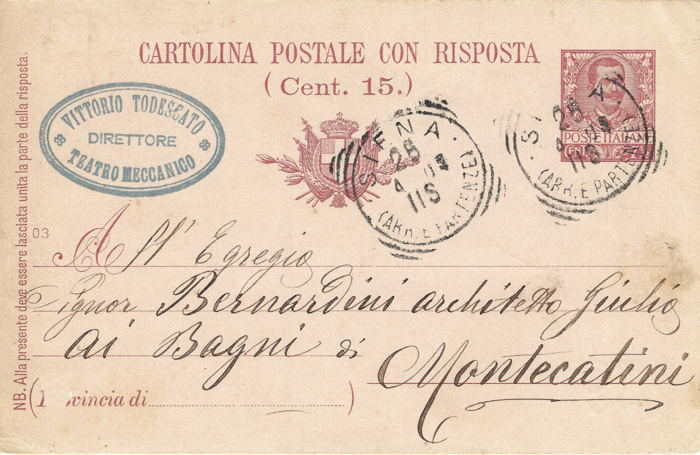 CARTOLINA POSTALE CON RISPOSTA
(Cent. 15.)
VITTORIO TODESCATO
DIRETTORE
TEATRO MECCANICO
SIENA
28
4 03
11S
(ARR. E PARTENZE)
SIENA
28
4 03
11S
(ARR. E PARTENZE)
POSTE ITALIANE
NB. Alla presente deve essere lasciata unita la parte della risposta.
03
All' Egregio
Signor Bernardini architetto Giulio
ai Bagni di
Montecatini
(Provincia di